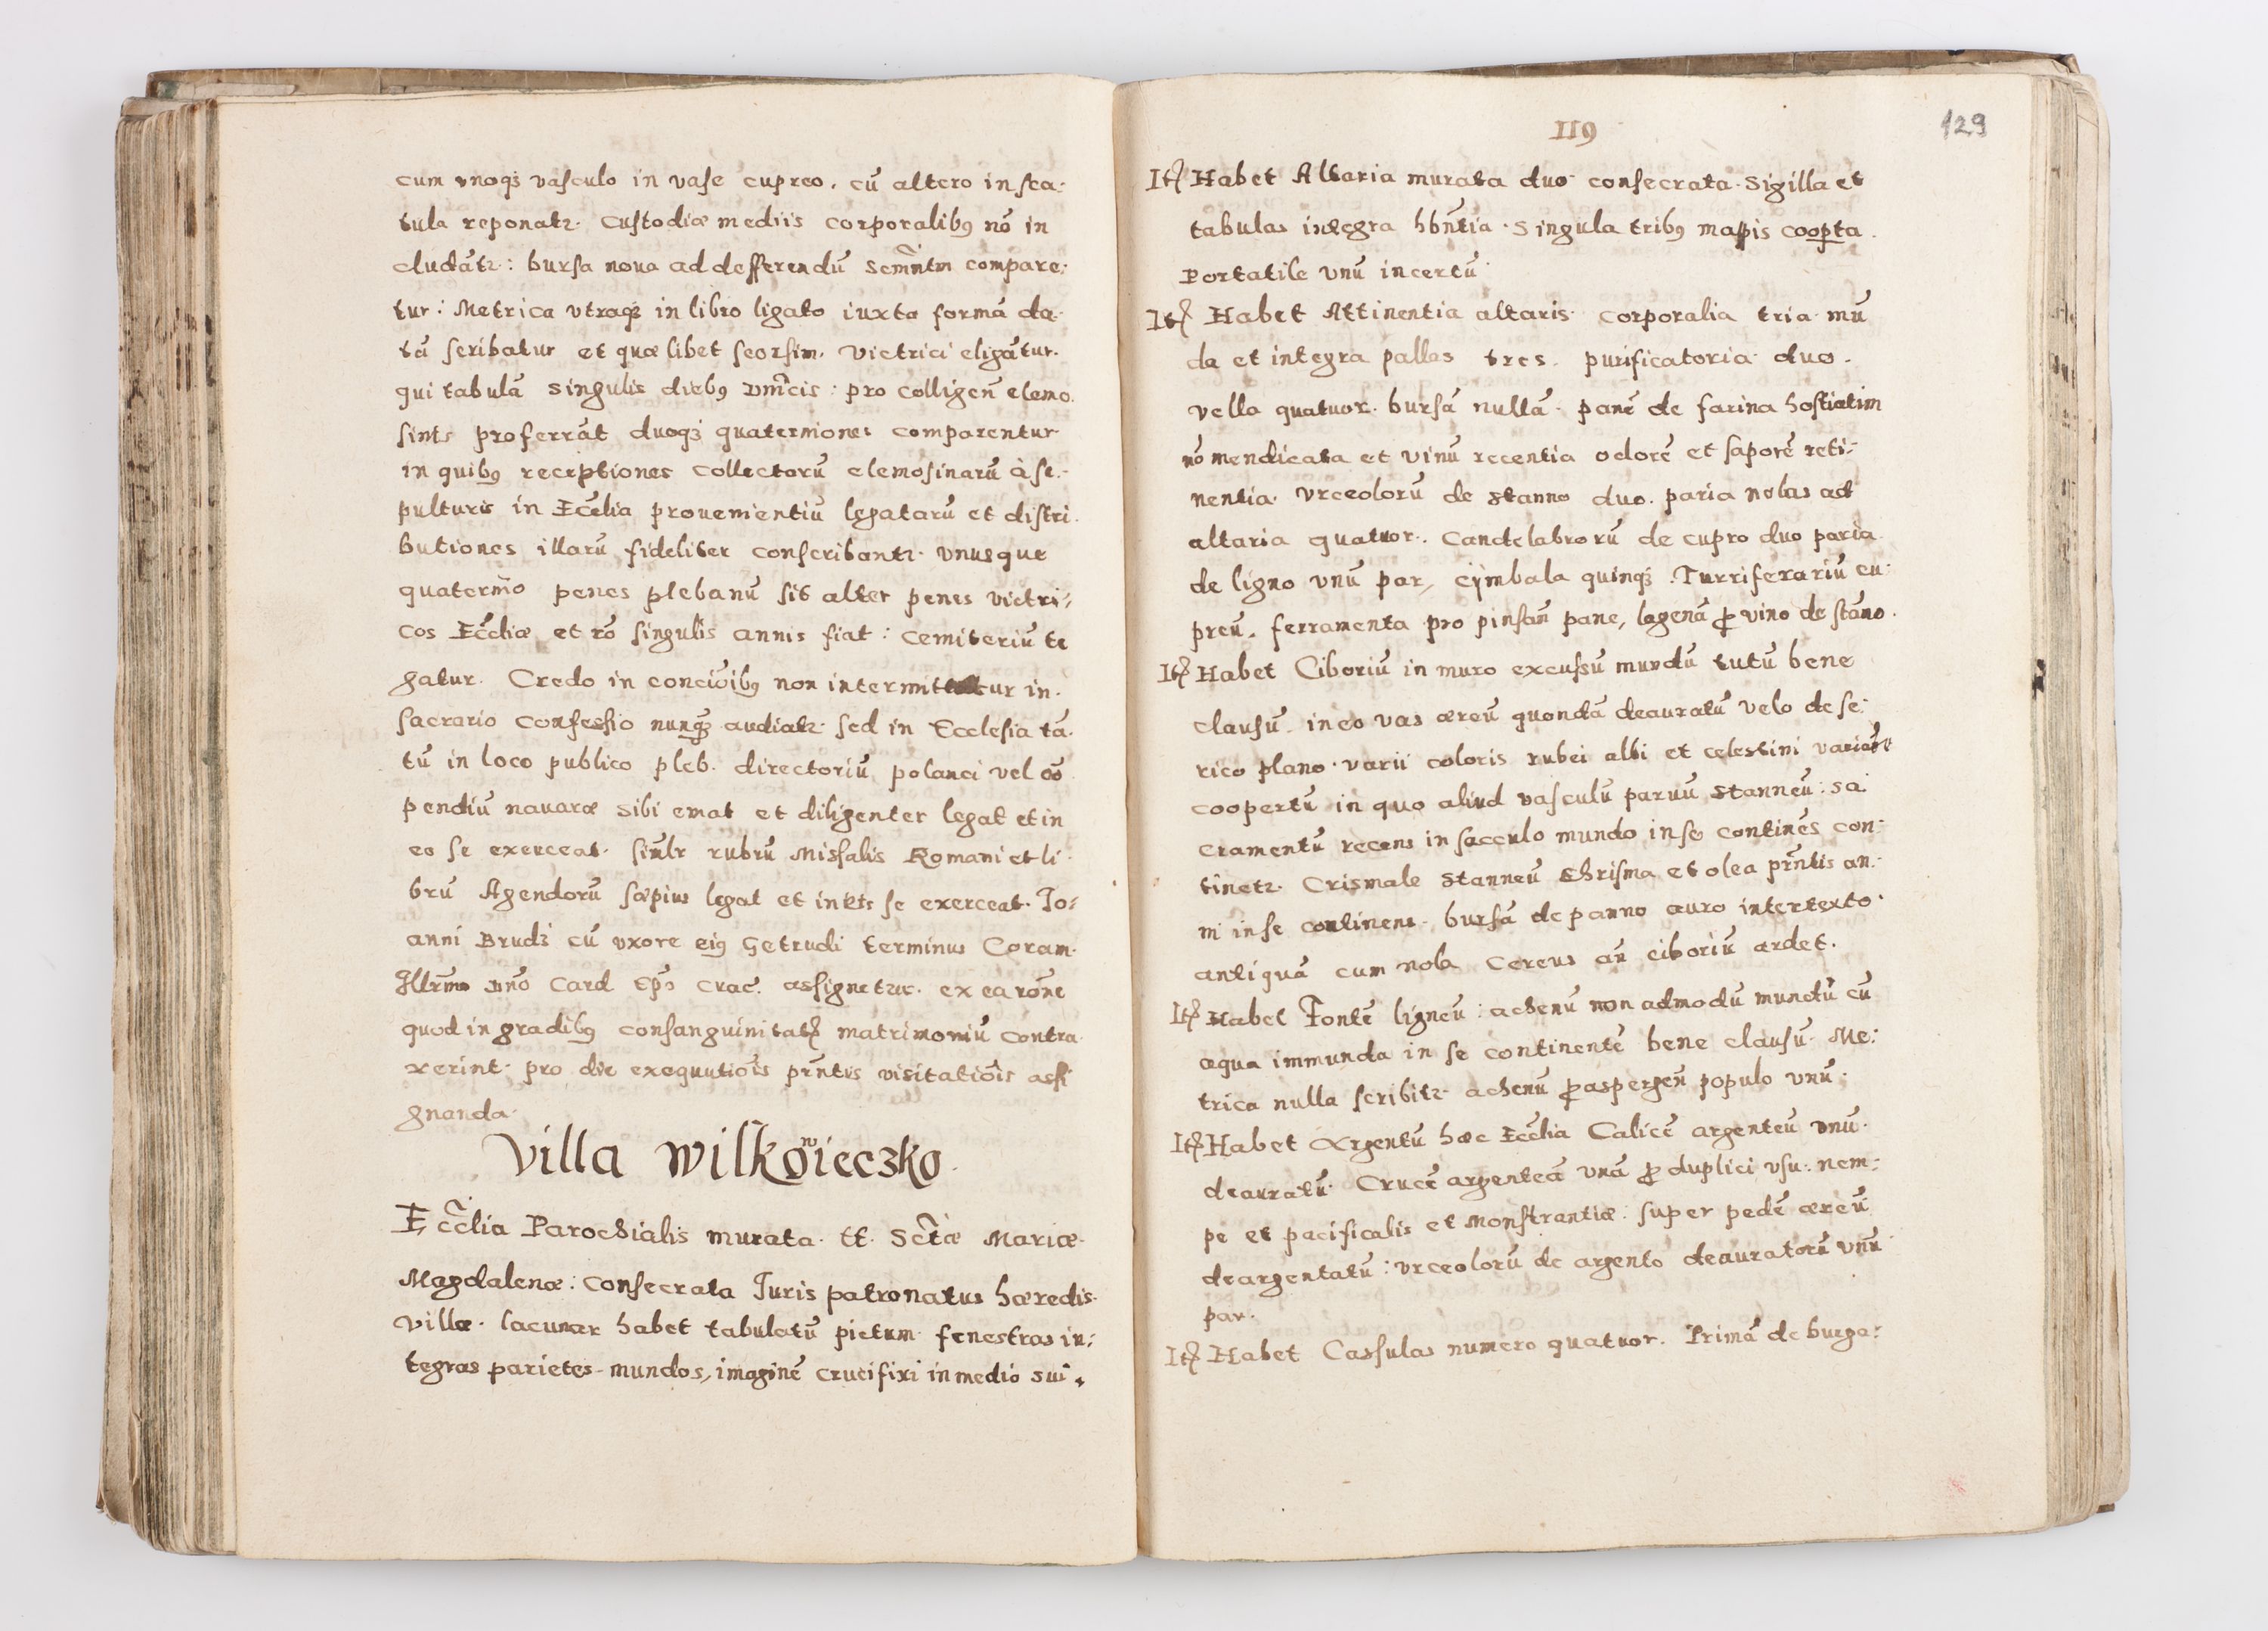 cum vnoqȝ vasculo in vase cupreo. cũ altero in sca-
tula reponatr. Custodiæ mediis corporalibꝰ nõ in
cludãtr: bursa noua ad defferendũ Scm̃ntm compare:
tur: Metrica vtraqȝ in libro ligato iuxta formã da-
tã scribatur et quælibet seorsim. Victrici eligãtur.
qui tabulã singulis diebꝰ Dnĩcis: pro colligeñ elemo
sinis proferrãt duoqȝ quaterniones comparentur
in quibꝰ receptiones collectorũ elemosinarũ à se-
pulturis in Ecc̃lia prouenientiũ legatarũ et distri-
butiones illarũ fideliter conscribantr. Vnusque
quaternio penes plebanũ sit alter penes victri-
cos Ecc̃liæ et rõ singulis annis fiat: Cemiteriũ te
gatur. Credo in concioĩbꝰ non intermittatur in
sacrario confessio nunqȝ audiatr. sed in Ecclesia tã-
tũ in loco publico pleb. directoriũ polanci vel cõ
pendiũ nauaræ sibi emat et diligenter legat et in
eo se exerceat. simlr rubrũ Missalis Romani et li-
brũ Agendorũ sæpius legat et in se exerceat. Jo-
anni Brudz cũ vxore eiꝰ Getrudi terminus Coram
Illrmo Dño Card Epõ Crac. assignetur. ex ea rõne
quod in gradibꝰ consanguinitatꝭ matrimoniũ contra
xerint. pro die exequutiõis prñtis visitatiõis assi
gnanda.
Villa Wilkowieczko.
Ecc̃lia Parochialis murata. tt. Sctæ Mariæ
Magdalenæ: consecrata Juris patronatus hæredis
villæ. lacunar habet tabulatũ pictum fenestras in:
tegras parietes mundos, imaginẽ crucifixi in medio sui.
119
129
Itꝭ Habet Altaria murata duo consecrata. sigilla et
tabulas integra hbñtia. singula tribꝰ mappis coopta.
Portatile vnũ incertũ.
Itꝭ Habet Attinentia altaris. corporalia tria mũ
da et integra pallas tres. purificatoria duo.
vella quatuor. bursã nullã. panẽ de farina hostiatim
nõ mendicata et vinũ recentia odorẽ et saporẽ reti-
nentia. Vrceolorũ de stanno duo. paria nolas ad
altaria quatuor. Candelabrorũ de cupro duo paria
de ligno vnũ par, cymbala quinqȝ. Turriferariũ cu-
preũ. ferramenta pro pinsañ pane, lagenã ꝓ vino de stãno.
Itꝭ Habet Ciboriũ in muro excussũ mundũ tutũ bene
clausũ. in eo vas æreũ quondã deauratũ velo de se:
rico plano varii coloris rubei albi et celestini
coopertũ in quo aliud vasculũ paruũ stanneũ: sa
cramentũ recens in sacculo mundo in se continẽs con-
tinetr. Crismale stanneũ Chrisma et olea prñtis an-
ni in se continens. bursã de panno auro intertexto
antiquã cum nola Cereus añ ciboriũ ardet.
Itꝭ Habet Fontẽ ligneũ: achenũ non admodũ mundũ cũ
aqua immunda in se continentẽ bene clausũ. Me:
trica nulla scribitr. achenũ ꝓ aspergeñ populo vnũ.
Itꝭ Habet Argentũ hæc Ecc̃lia Calicẽ argenteũ vnũ.
deauratũ. Crucẽ argenteã vnã ꝓ duplici vsu. nem:
pe et pacificalis et Monstrantiæ: super pedẽ æreũ
deargentatũ: vrceolorũ de argento deauratorũ vnũ
par.
Itꝭ Habet Cassulas numero quatuor. Primã de burga: